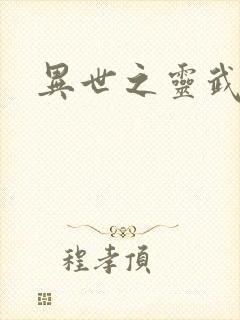 異世之靈武
程孝頂